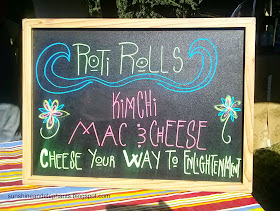 Roti Rolls
KimChi
Mac & Cheese
Cheese Your Way To Enlightenment
sunshineandelephants.blogspot.com